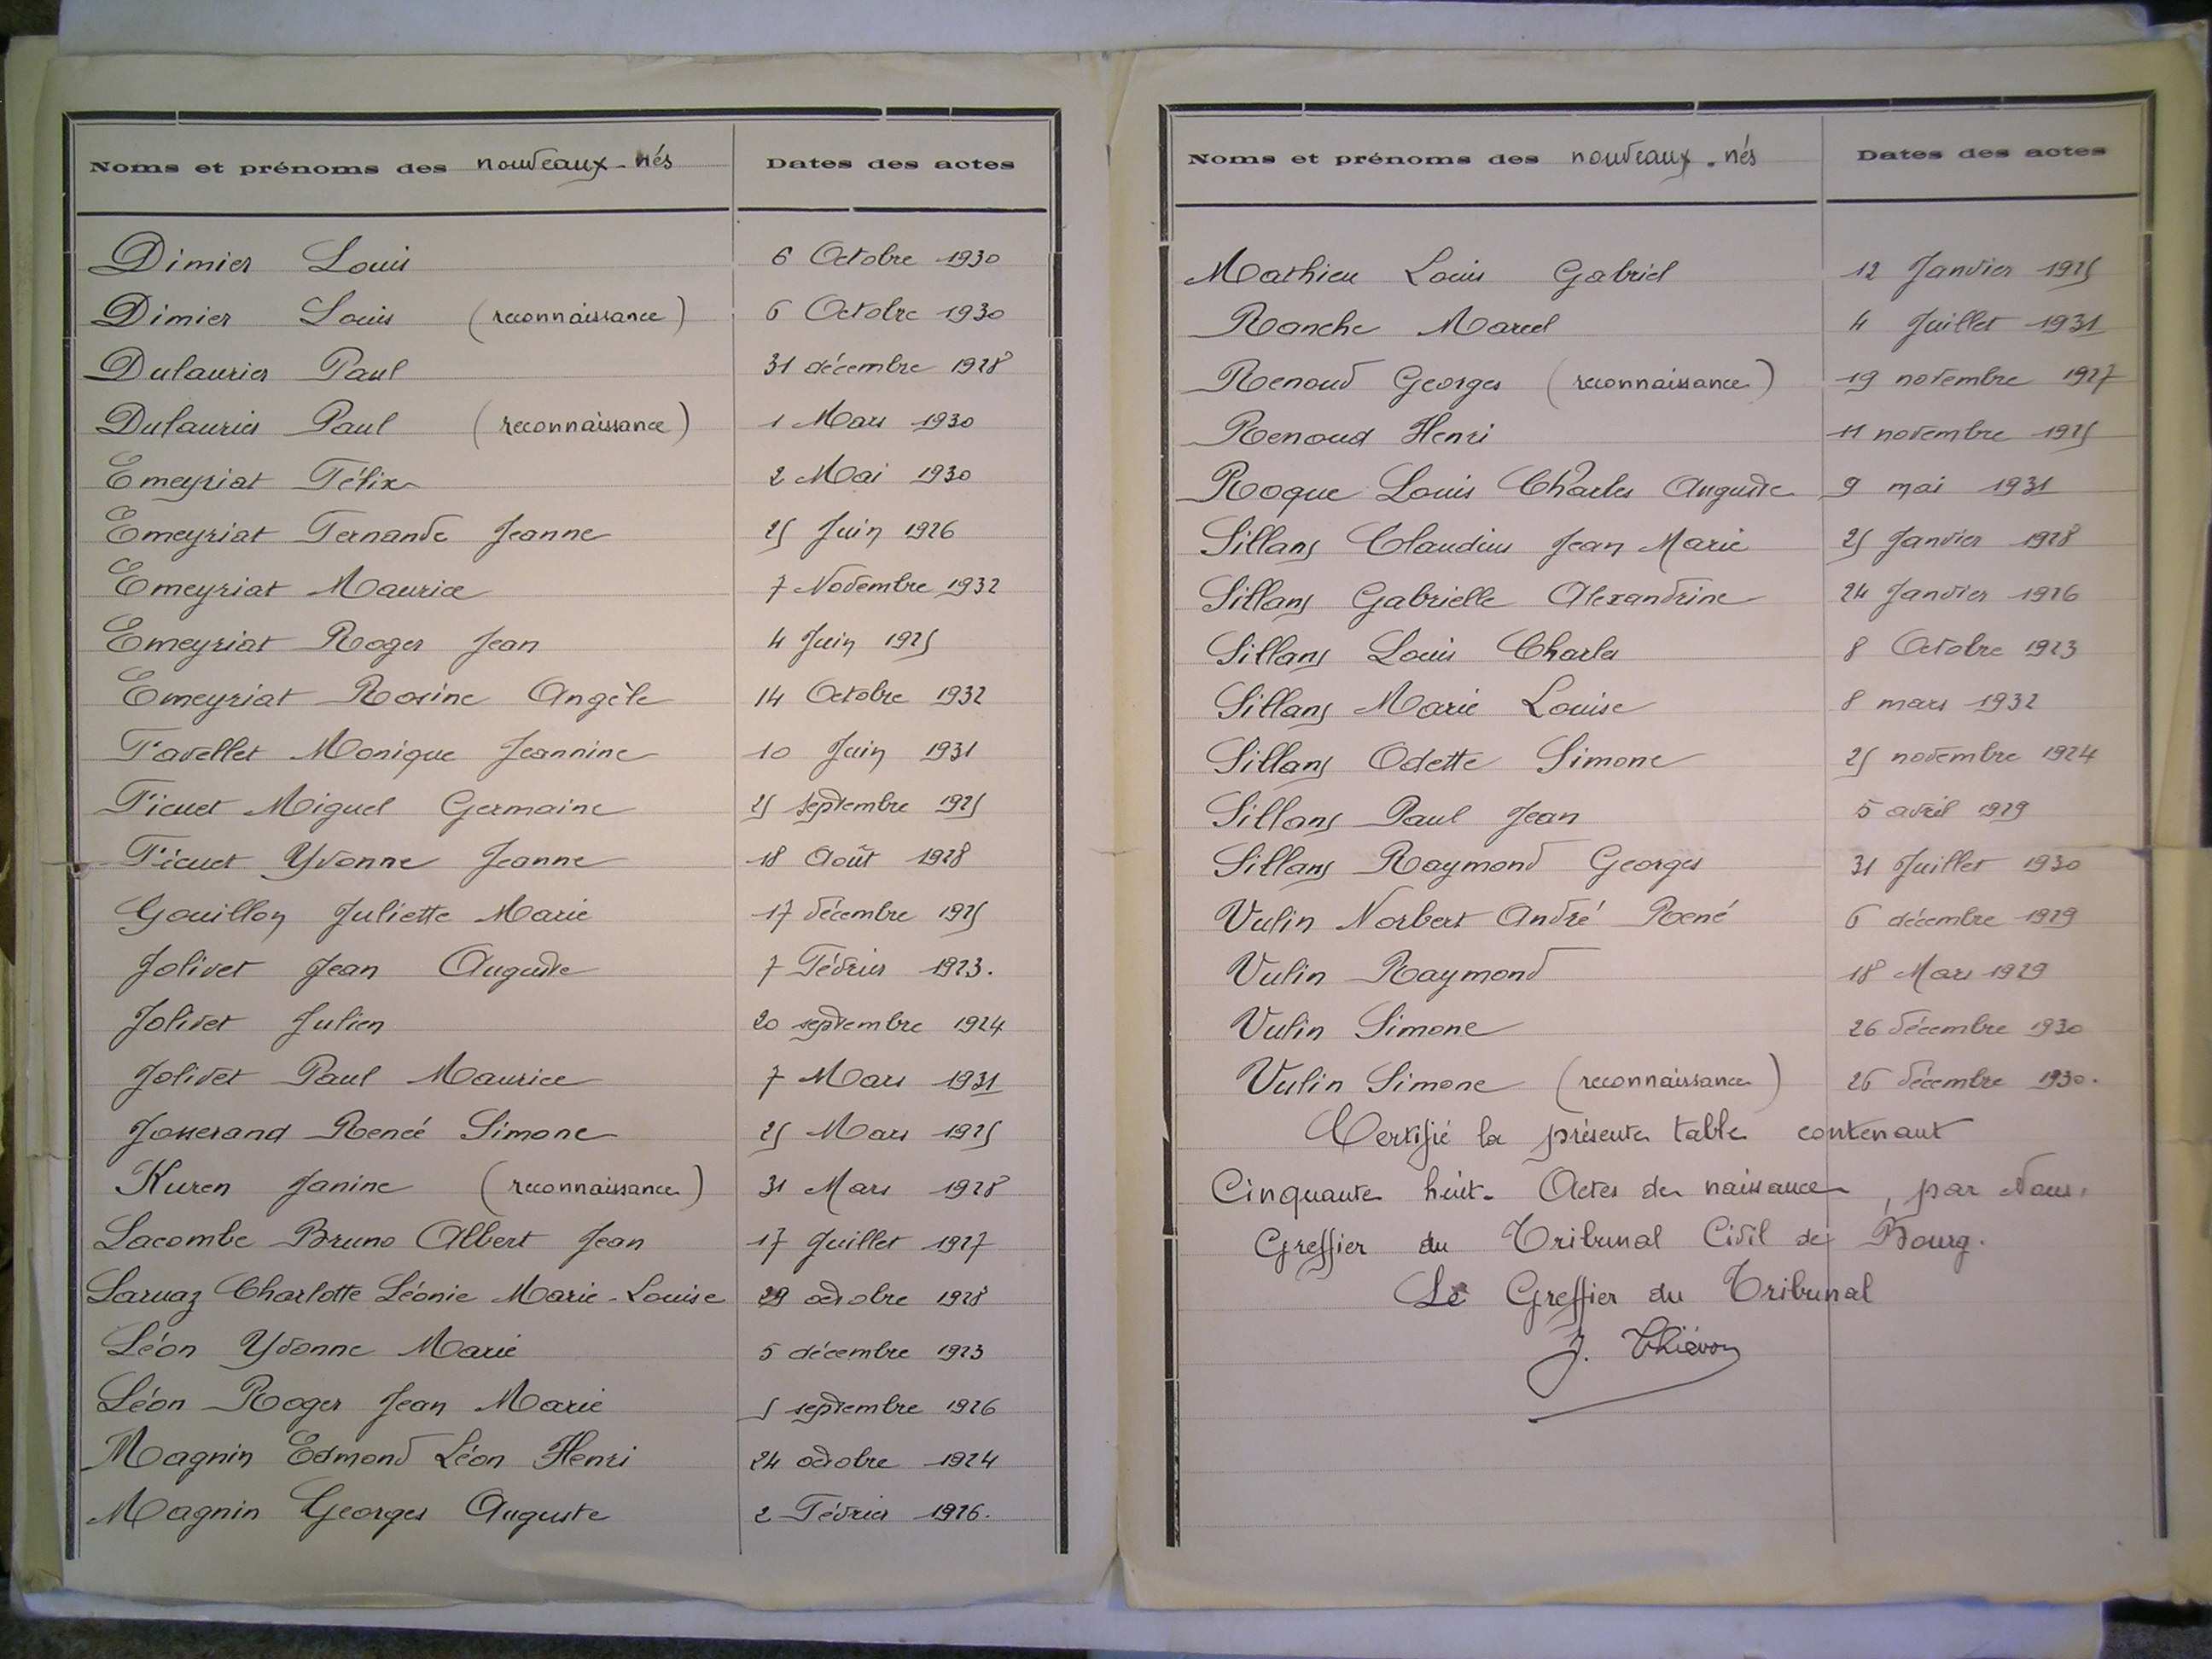 Noms et prénoms des nouveaux-nés Dates des actes
Dimier Louis 6 Octobre 1930
Dimier Louis (reconnaissance) 6 Octobre 1930
Dulaurier Paul 31 décembre 1928
Dulaurier Paul (reconnaissance) 1 Mars 1930
Emeyriat Félix 2 Mai 1930
Emeyriat Fernande Jeanne 25 Juin 1926
Emeyriat Maurice 7 Novembre 1932
Emeyriat Roger Jean 4 Juin 1925
Emeyriat Rosine Angèle 14 Octobre 1932
Favellet Monique Jeannine 10 Juin 1931
Ficuet Miguel Germaine 25 septembre 1925
Ficuet Yvonne Jeanne 18 Août 1928
Gouillon Juliette Marie 17 décembre 1925
Jolivet Jean Auguste 7 Février 1923.
Jolivet Julien 20 septembre 1924
Jolivet Paul Maurice 7 Mars 1931
Josserand Reneé Simone 25 Mars 1925
Kuren Janine (reconnaissance) 31 Mars 1928
Lacombe Bruno Albert Jean 17 Juillet 1927
Laruaz Charlotte Léonie Marie-Louise 29 octobre 1928
Léon Yvonne Marie 5 décembre 1923
Léon Roger Jean Marie 5 septembre 1926
Magnin Edmond Léon Henri 24 octobre 1924
Magnin Georges Auguste 2 Février 1926.
Noms et prénoms des nouveaux-nés Dates des actes
Mathieu Louis Gabriel 12 Janvier 1925
Ranche Marcel 4 Juillet 1931
Renoud Georges (reconnaissance) 19 novembre 1927
Renoud Henri 11 novembre 1925
Roque Louis Charles Auguste 9 mai 1931
Sillans Claudius Jean Marie 25 Janvier 1928
Sillans Gabrielle Alexandrine 24 Janvier 1926
Sillans Louis Charles 8 Octobre 1923
Sillans Marie Louise 8 mars 1932
Sillans Odette Simone 25 novembre 1924
Sillans Paul Jean 5 avril 1929
Sillans Raymond Georges 31 Juillet 1930
Vulin Norbert André René 6 décembre 1929
Vulin Raymond 18 Mars 1929
Vulin Simone 26 décembre 1930
Vulin Simone (reconnaissance) 26 décembre 1930.
Certifié la présente table contenant
Cinquante huit. Actes de naissance, par Nous,
Greffier du Tribunal Civil de Bourg.
Le Greffier du Tribunal
J. Thiévon